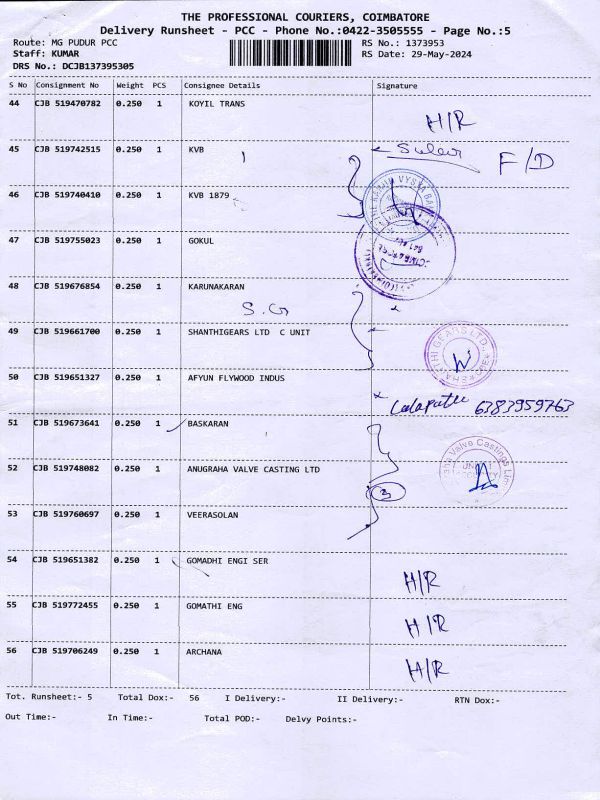 THE PROFESSIONAL COURIERS, COIMBATORE
Delivery Runsheet - PCC - Phone No.:0422-3505555 - Page No.:5
Route: MG PUDUR PCC RS No.: 1373953
Staff: KUMAR RS Date: 29-May-2024
DRS No.: DCJB137395305
S No Consignment No Weight PCS Consignee Details Signature
44 CJB 519470782 0.250 1 KOYIL TRANS
H/R
45 CJB 519742515 0.250 1 KVB
F/D
46 CJB 519740410 0.250 1 KVB 1879
47 CJB 519755023 0.250 1 GOKUL
48 CJB 519676854 0.250 1 KARUNAKARAN
S.G
49 CJB 519661700 0.250 1 SHANTHIGEARS LTD C UNIT
50 CJB 519651327 0.250 1 AFYUN FLYWOOD INDUS
6383959763
51 CJB 519673641 0.250 1 BASKARAN
52 CJB 519748082 0.250 1 ANUGRAHA VALVE CASTING LTD
3
53 CJB 519760697 0.250 1 VEERASOLAN
54 CJB 519651382 0.250 1 GOMADHI ENGI SER
H/R
55 CJB 519772455 0.250 1 GOMATHI ENG
H/R
56 CJB 519706249 0.250 1 ARCHANA
H/R
Tot. Runsheet:- 5 Total Dox:- 56 I Delivery:- II Delivery:- RTN Dox:-
Out Time:- In Time:- Total POD:- Delvy Points:-